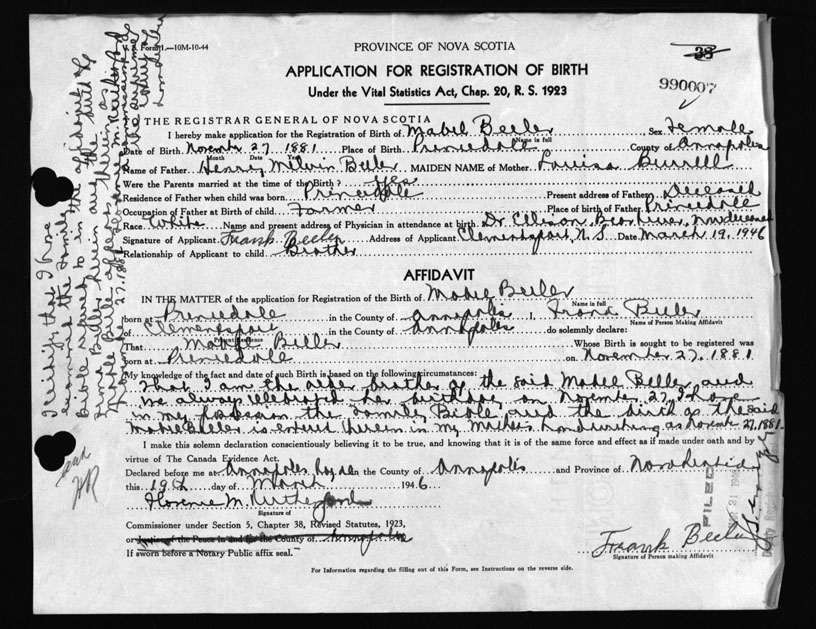 Form 1.—10M-10-44
PROVINCE OF NOVA SCOTIA
38
APPLICATION FOR REGISTRATION OF BIRTH
990007
Under the Vital Statistics Act, Chap. 20, R. S. 1923
THE REGISTRAR GENERAL OF NOVA SCOTIA
I hereby make application for the Registration of Birth of Mabel Beeler Sex Female
Name in full
Date of Birth November 27, 1881 Place of Birth Princedale County of Annapolis
Month Date Year
Name of Father Henry Melvin Beeler MAIDEN NAME of Mother Louisa Burrell
Were the Parents married at the time of the Birth? Yes
Residence of Father when child was born Princedale Present address of Father Deceased
Occupation of Father at Birth of child Farmer Place of birth of Father Princedale
Race White Name and present address of Physician in attendance at birth Dr. Ellison, Bear River, now deceased
Signature of Applicant Frank Beeler Address of Applicant Clementsport, N.S. Date March 19, 1946
Relationship of Applicant to child Brother
AFFIDAVIT
IN THE MATTER of the application for Registration of the Birth of Mabel Beeler
Name in full
born at Princedale in the County of Annapolis I, Frank Beeler
Name of Person Making Affidavit
of Clementsport in the County of Annapolis do solemnly declare:
Present Residence
That Mabel Beeler Whose Birth is sought to be registered was
born at Princedale on November 27, 1881
My knowledge of the fact and date of such Birth is based on the following circumstances:
That I am the older brother of the said Mabel Beeler and
we always celebrated her birthday on November 27, I have
in my possession the Family Bible and the birth of the said
Mabel Beeler is entered therein in my Mother's handwriting as November 27, 1881.
I make this solemn declaration conscientiously believing it to be true, and knowing that it is of the same force and effect as if made under oath and by
virtue of The Canada Evidence Act.
Declared before me at Annapolis Royal in the County of Annapolis and Province of Nova Scotia
this 19th day of March 1946
Signature of
Commissioner under Section 5, Chapter 38, Revised Statutes, 1923,
or Justice of the Peace in and for the County of Annapolis
If sworn before a Notary Public affix seal.
Frank Beeler
Signature of Person making Affidavit
FILED
For Information regarding the filling out of this Form, see Instructions on the reverse side.
I certify that I have
examined the Family
Bible referred to in the affidavit